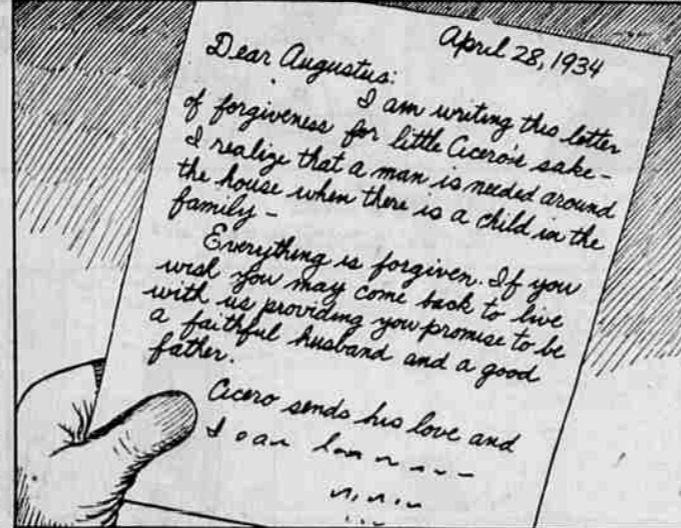 April 28, 1934
Dear Augustus:
I am writing this letter
of forgiveness for little Cicero's sake –
I realize that a man is needed around
the house when there is a child in the
family –
Everything is forgiven. If you
wish you may come back to live
with us providing you promise to be
a faithful husband and a good
father.
Cicero sends his love and
I